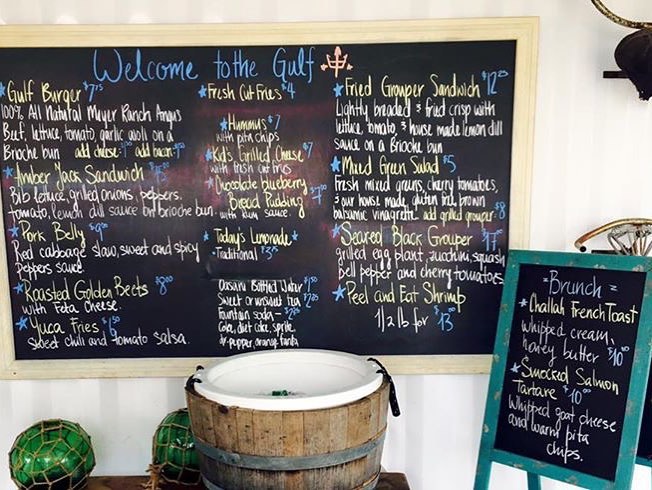 Welcome to the Gulf
Gulf Burger $7.75
100% All Natural Meyer Ranch Angus
Beef, lettuce, tomato, garlic aioli on a
Brioche bun add cheese·$1.00 add bacon·$1.50
Amber Jack Sandwich
Bib lettuce, grilled onions, peppers,
tomato, lemon dill sauce on brioche bun
Pork Belly
Red cabbage slaw, sweet and spicy
peppers sauce
Roasted Golden Beets $8.00
with Feta cheese.
Yuca Fries
sweet chili and tomato salsa.
Fresh Cut Fries $4
Hummus $7
with pita chips
Kid's Grilled Cheese $7
with fresh cut fries
Chocolate Blueberry
Bread Pudding
with Rum sauce.
Today's Lemonade
Traditional $3.75
Bottled Water
Sweet or unsweet tea
Fountain soda-
Coke, diet coke, sprite,
dr. pepper, orange fanta
Fried Grouper Sandwich $12.00
Lightly breaded & fried crisp with
lettuce, tomato, & house made lemon dill
sauce on a Brioche bun
Mixed Green Salad $5
Fresh mixed greens, cherry tomatoes,
& our house made, gluten free, brown
balsamic vinagrette add grilled grouper·$8
Seared Black Grouper $17.00
grilled egg plant, zucchini, squash,
Bell pepper and cherry tomatoes
Peel and Eat Shrimp
1/2 lb for $13.00
=Brunch=
Challah French Toast
whipped cream,
honey butter $10.00
Smocked Salmon
Tartare $10.00
Whipped goat cheese
and warm pita
chips.